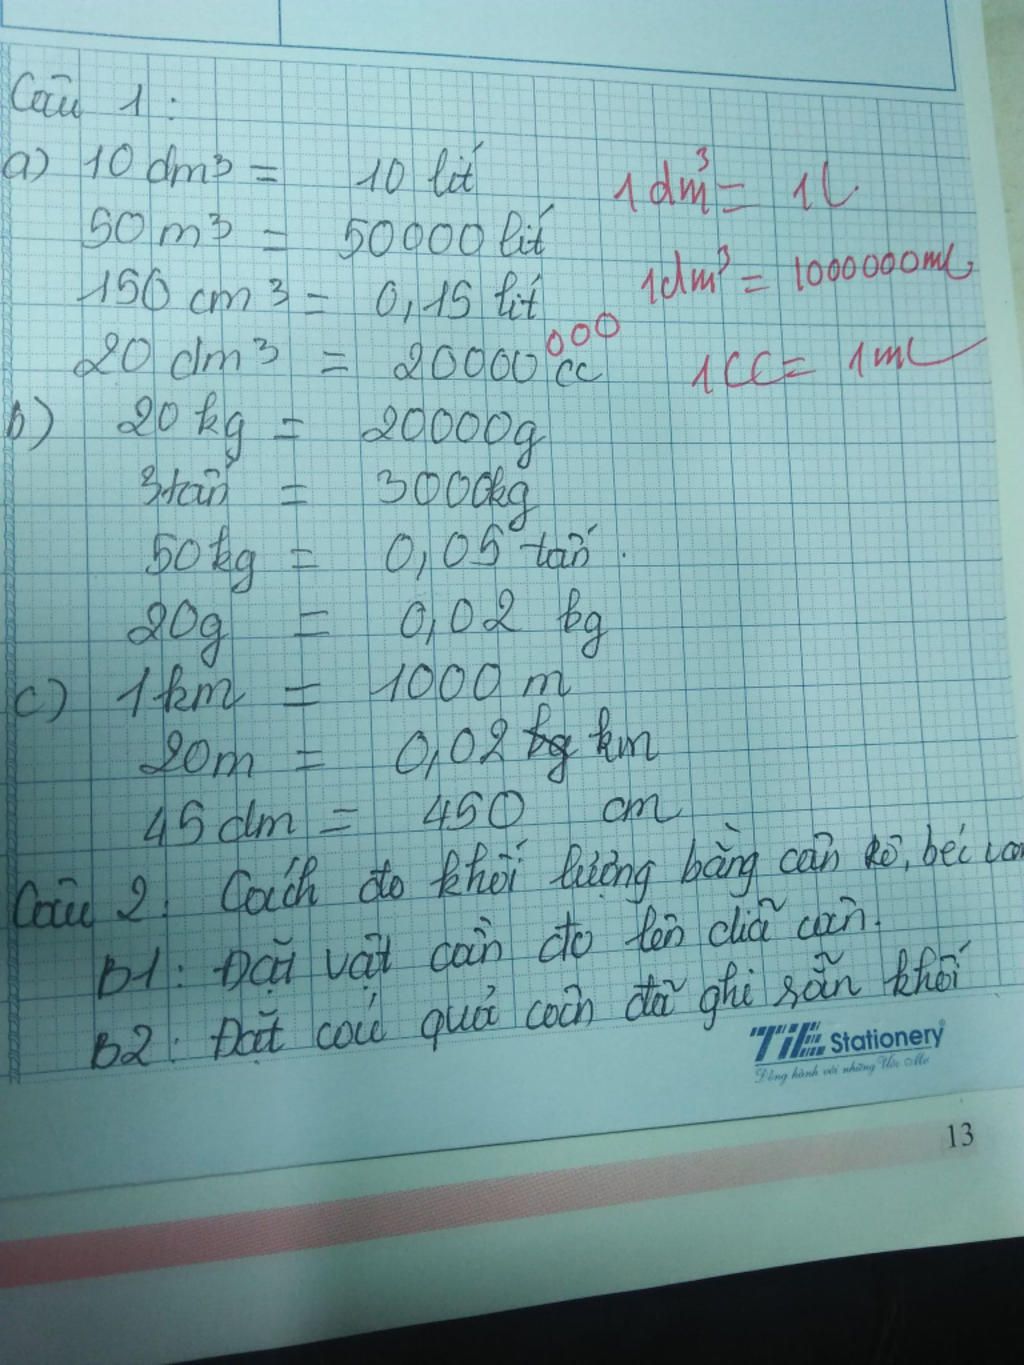 Câu 1:
a) 10 dm³ = 10 lít 1 dm³ = 1L
50 m³ = 50000 lít
150 cm³ = 0,15 lít 1dm³ = 1000000mL
20 dm³ = 20000 000 cc 1CC = 1mL
b) 20 kg = 20000g
3 tấn = 3000kg
50 kg = 0,05 tấn.
20g = 0,02 kg
c) 1 km = 1000 m
20m = 0,02 kg km
45 dm = 450 cm
Câu 2: Cách đo khối lượng bằng cân
B1: Đặt vật cần đo lên đĩa cân.
B2: Đặt các quả cân đã ghi sẵn khối
TiE Stationery
Đồng hành với những Ước Mơ
13